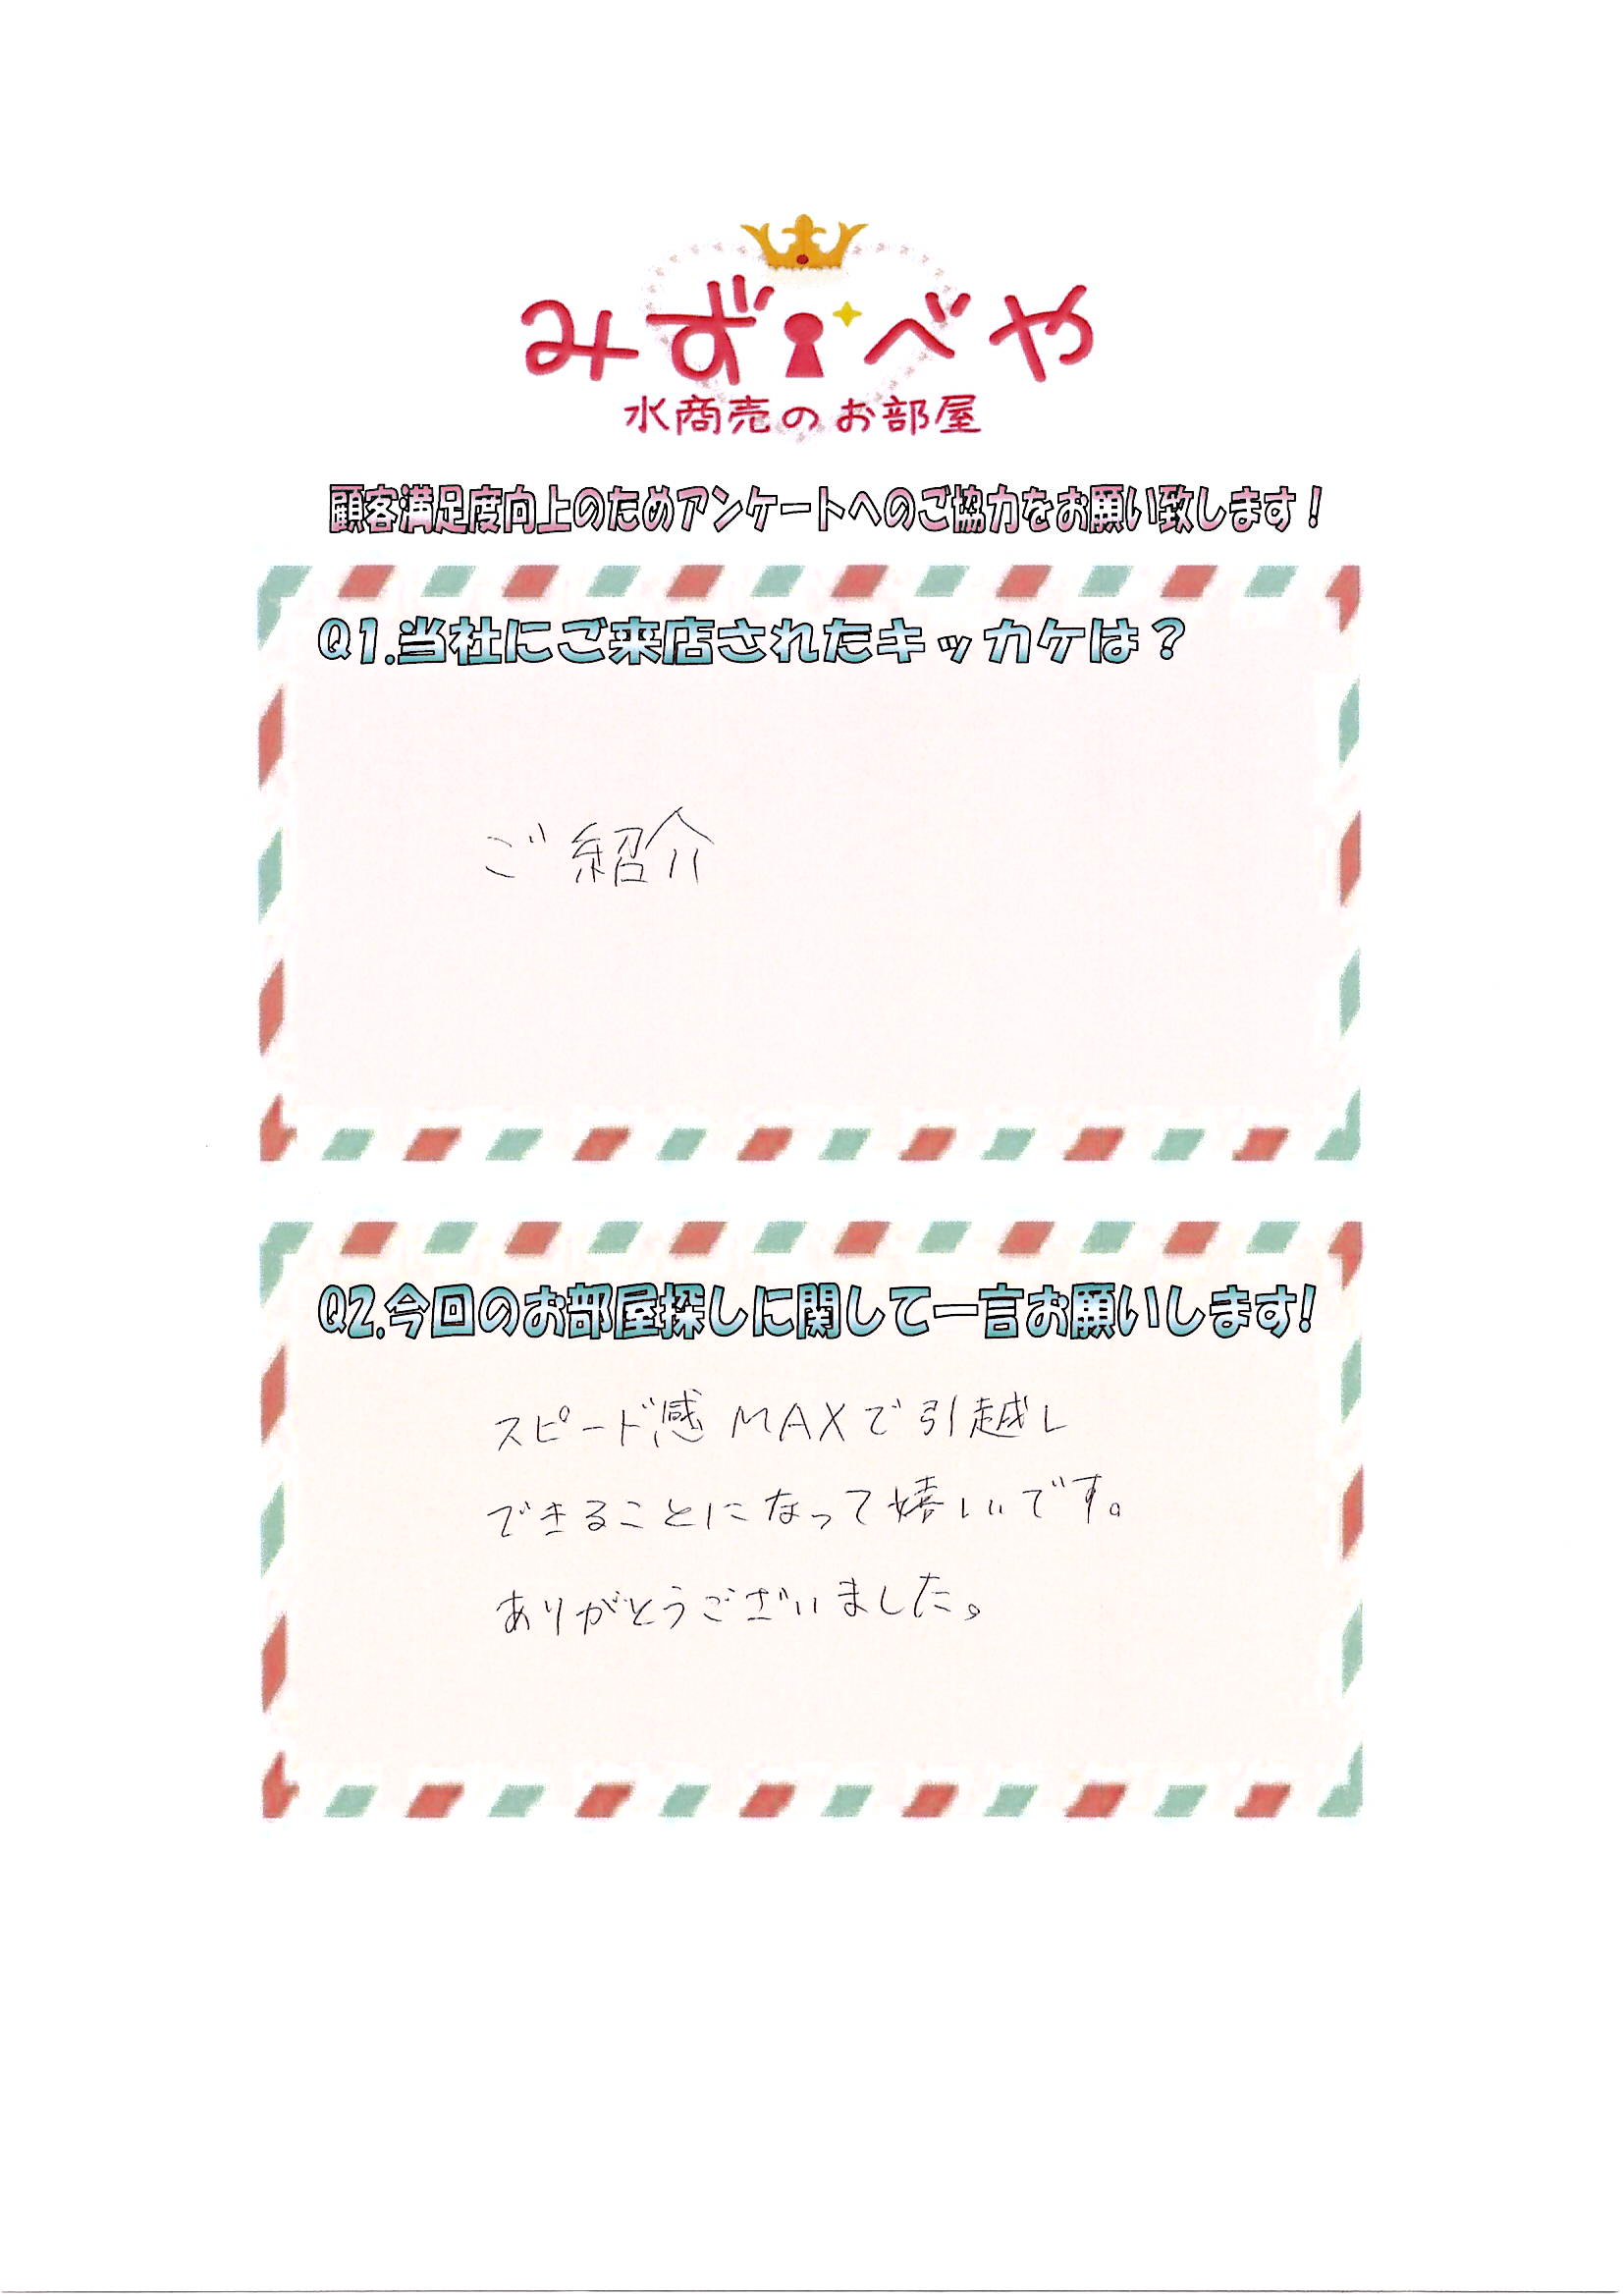 みずべや
水商売のお部屋
顧客満足度向上のためアンケートへのご協力をお願い致します！
Q1.当社にご来店されたキッカケは？
ご紹介
Q2.今回のお部屋探しに関して一言お願いします!
スピード感MAXで引越し
できることになって嬉しいです。
ありがとうございました。